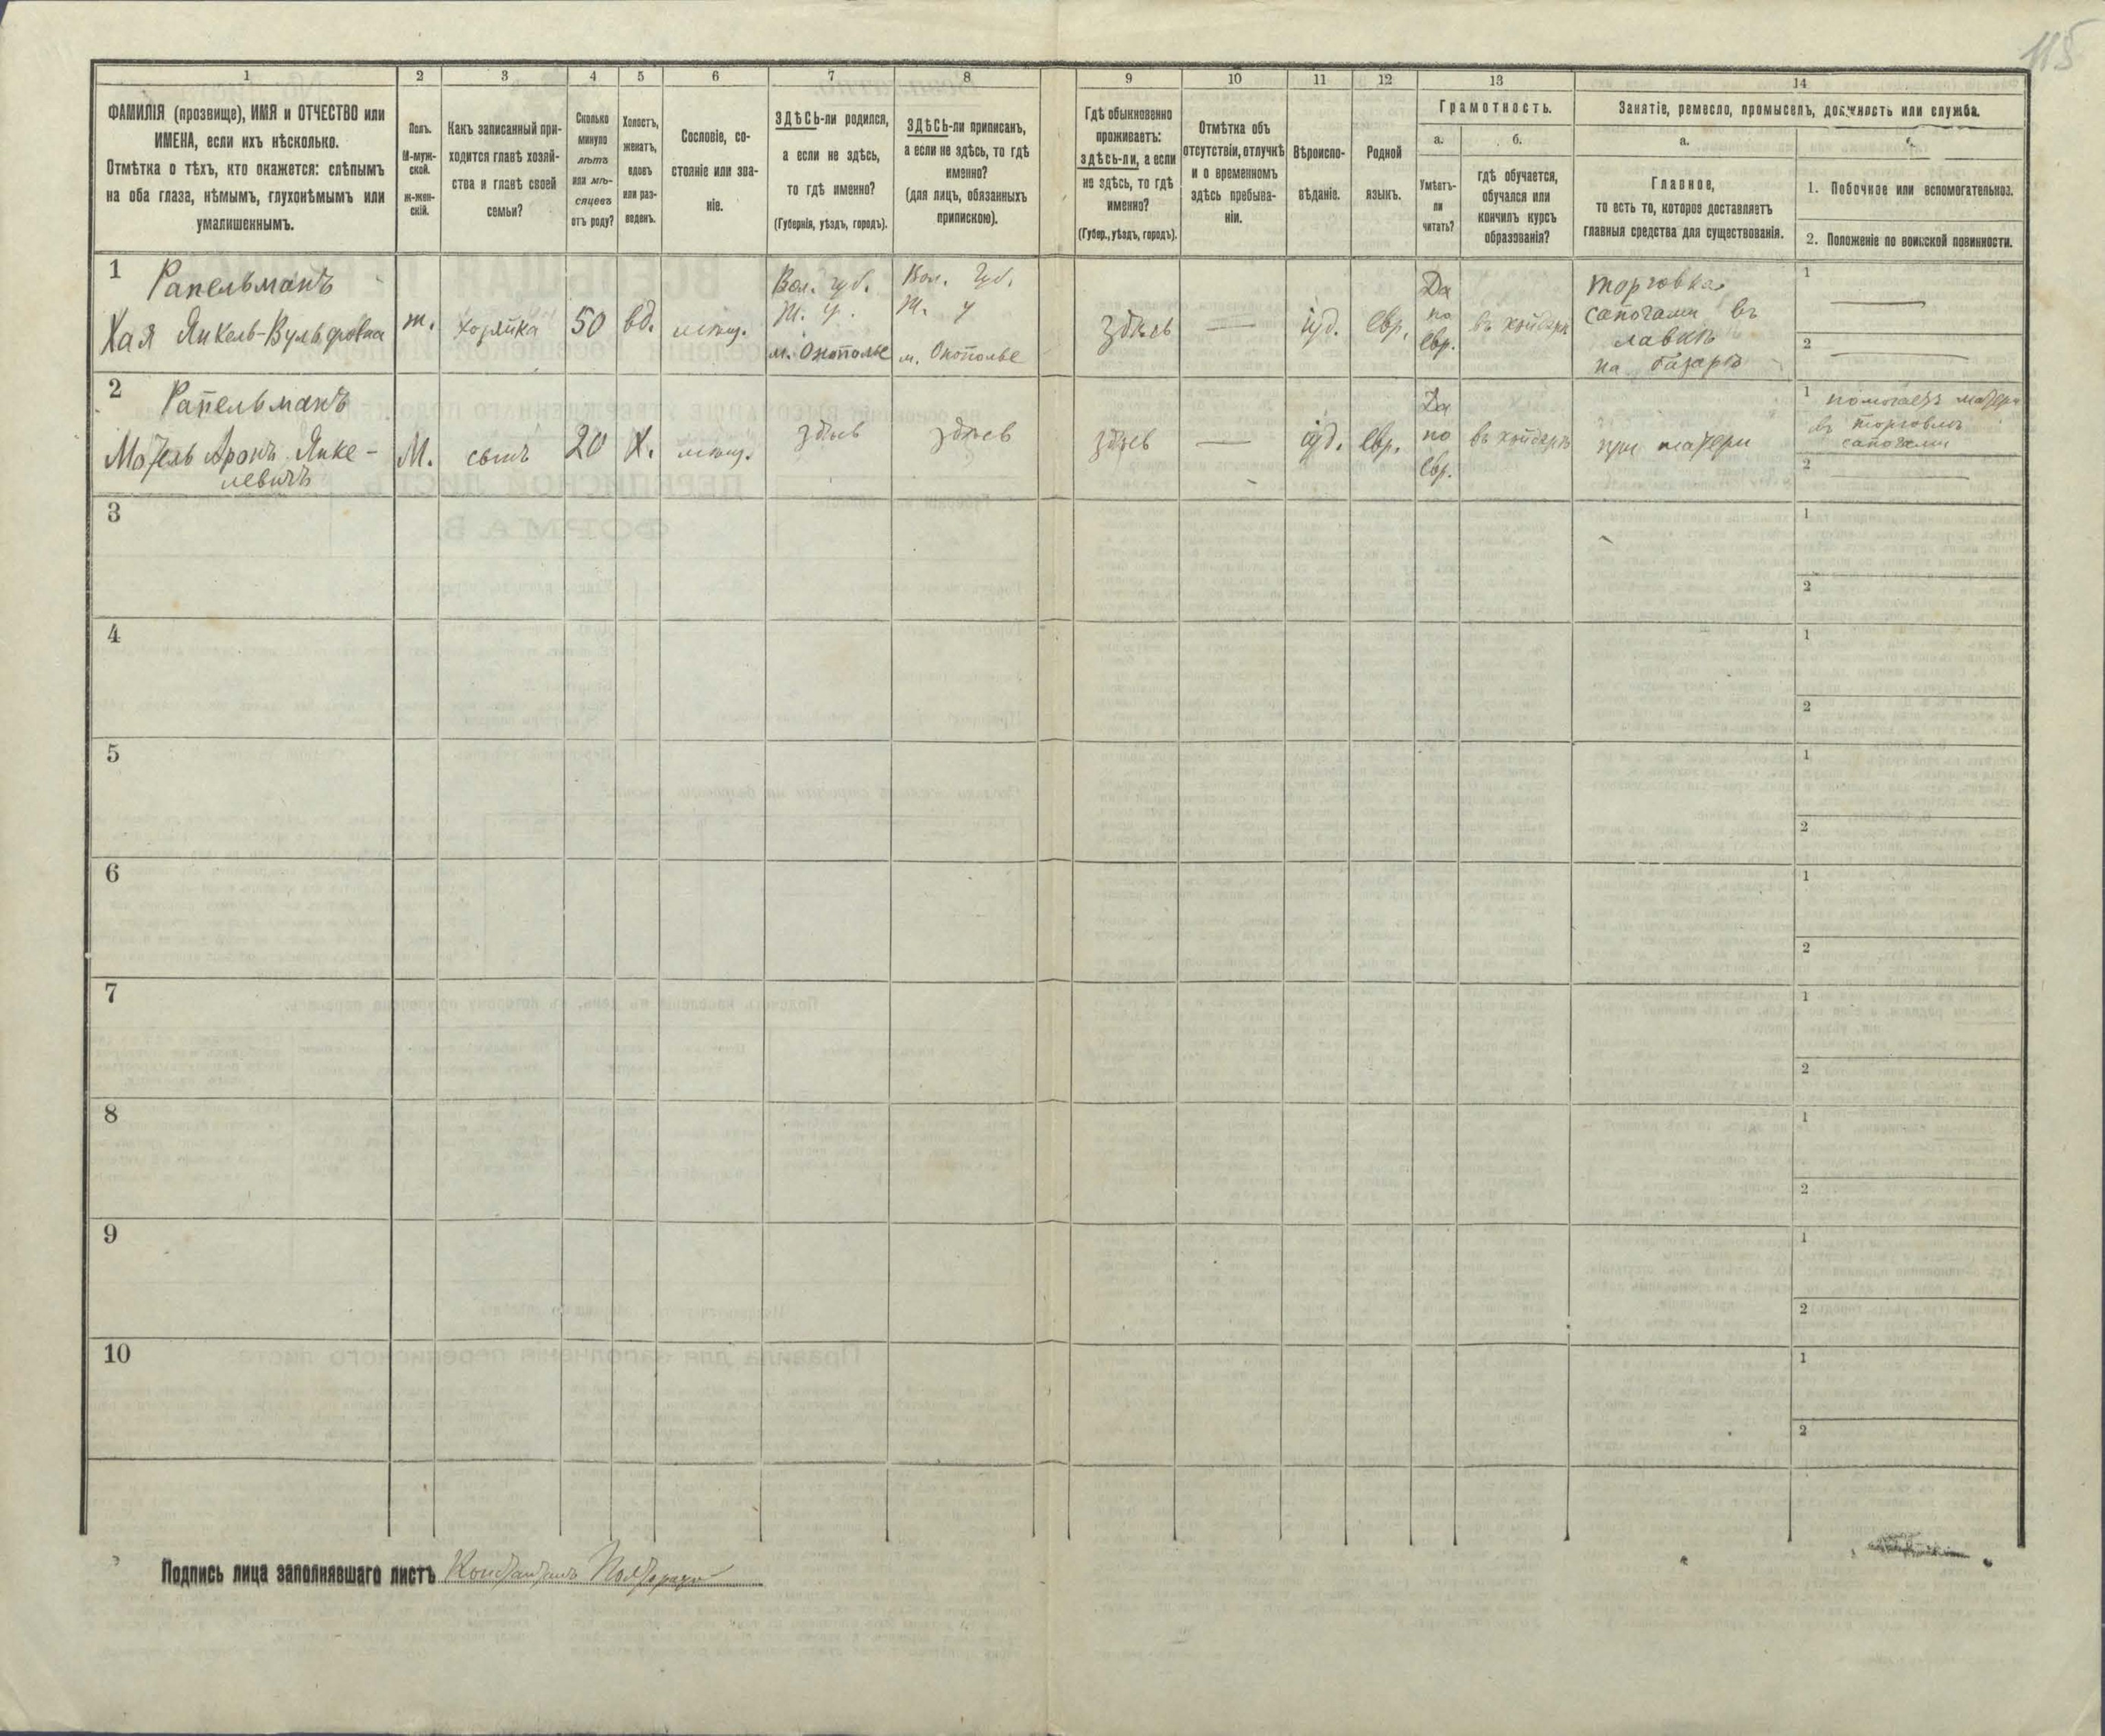 115
1
2
3
4
5
6
7
8
9
10
11
12
13
14
ФАМИЛІЯ (прозвище), ИМЯ и ОТЧЕСТВО или
ИМЕНА, если ихъ нѣсколько.
Отмѣтка о тѣхъ, кто окажется: слѣпымъ
на оба глаза, нѣмымъ, глухонѣмымъ или
умалишеннымъ.
Полъ.
М-муж-
ской.
ж-жен-
скій.
Какъ записанный при-
ходится главѣ хозяй-
ства и главѣ своей
семьи?
Сколько
минуло
лѣтъ
или мѣ-
сяцевъ
отъ роду?
Холостъ,
женатъ,
вдовъ
или раз-
веденъ.
Сословіе, со-
стояніе или зва-
ніе.
ЗДѢСЬ-ли родился,
а если не здѣсь,
то гдѣ именно?
(Губернія, уѣздъ, городъ).
ЗДѢСЬ-ли приписанъ,
а если не здѣсь, то гдѣ
именно?
(для лицъ, обязанныхъ
припискою).
Гдѣ обыкновенно
проживаетъ:
здѣсь-ли, а если
не здѣсь, то гдѣ
именно?
(Губер., уѣздъ, городъ).
Отмѣтка объ
отсутствіи, отлучкѣ
и о временномъ
здѣсь пребыва-
ніи.
Вѣроиспо-
вѣданіе.
Родной
языкъ.
Грамотность.
а.
Умѣетъ-
ли
читать?
б.
гдѣ обучается,
обучался или
кончилъ курсъ
образованія?
Занятіе, ремесло, промыселъ, должность или служба.
а.
Главное,
то есть то, которое доставляетъ
главныя средства для существованія.
1. Побочное или вспомогательное.
2. Положеніе по воинской повинности.
1
Рапельманъ
Хая Янкель-Вульфовна
ж.
хозяйка
50
вд.
мѣщ.
Вол. губ.
Ж. у.
м. Охополье
Вол. Губ.
Ж. у
м. Охополье
здѣсь
—
іуд.
евр.
Да
по
евр.
въ хейдерѣ
торговка
сапогами въ
лавкѣ
на базарѣ
1
—
2
—
2
Рапельманъ
Мотель Аронъ Янке-
левичъ
М.
сынъ
20
Х.
мѣщ.
здѣсь
здѣсь
здѣсь
—
іуд.
евр.
Да
по
евр.
въ хейдерѣ
при матери
1 помогаетъ матери
въ торговлѣ
сапогами
2
—
3
1
2
4
1
2
5
1
2
6
1
2
7
1
2
8
1
2
9
1
2
10
1
2
Подпись лица заполнявшаго листъ Константинъ